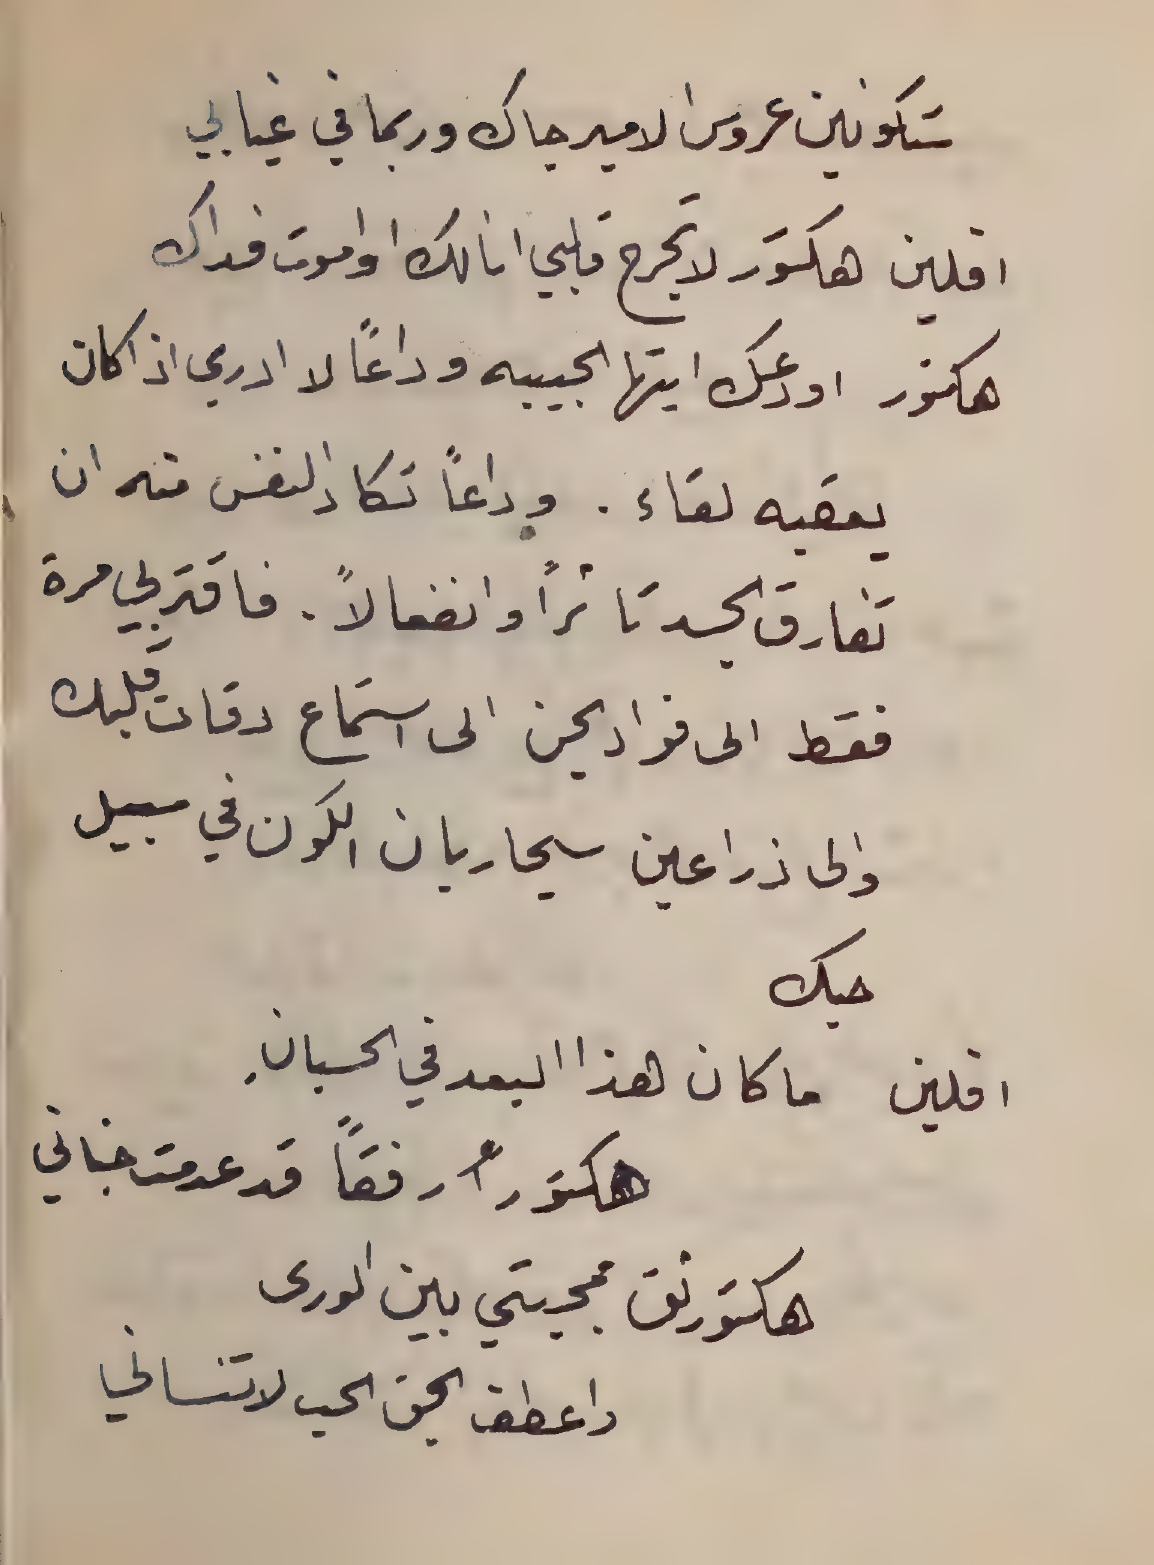 ستكونين عروس الامير جاك وربما في غيابي
افلين هكتور لا تجرح قلبي انا لك او اموت فداك
هكتور اودعك ايتها الحبيبه وداعًا لا ادري اذا كان
يعقبه لقاء . وداعًا تكاد النفس منه ان
تفارق الجسد تاثرًا وانفعالاً . فاقتربي مرة
فقط الى فواد يحن الى استماع دقات قلبك
والى ذراعين سيحاربان الكون في سبيل
حبك
افلين ما كان هذا البعد في الحسبان
هكتور رفقًا قد عدمت جناني
هكتور ثق بمحبتي بين الورى
واعطف بحق الحب لا تنساني